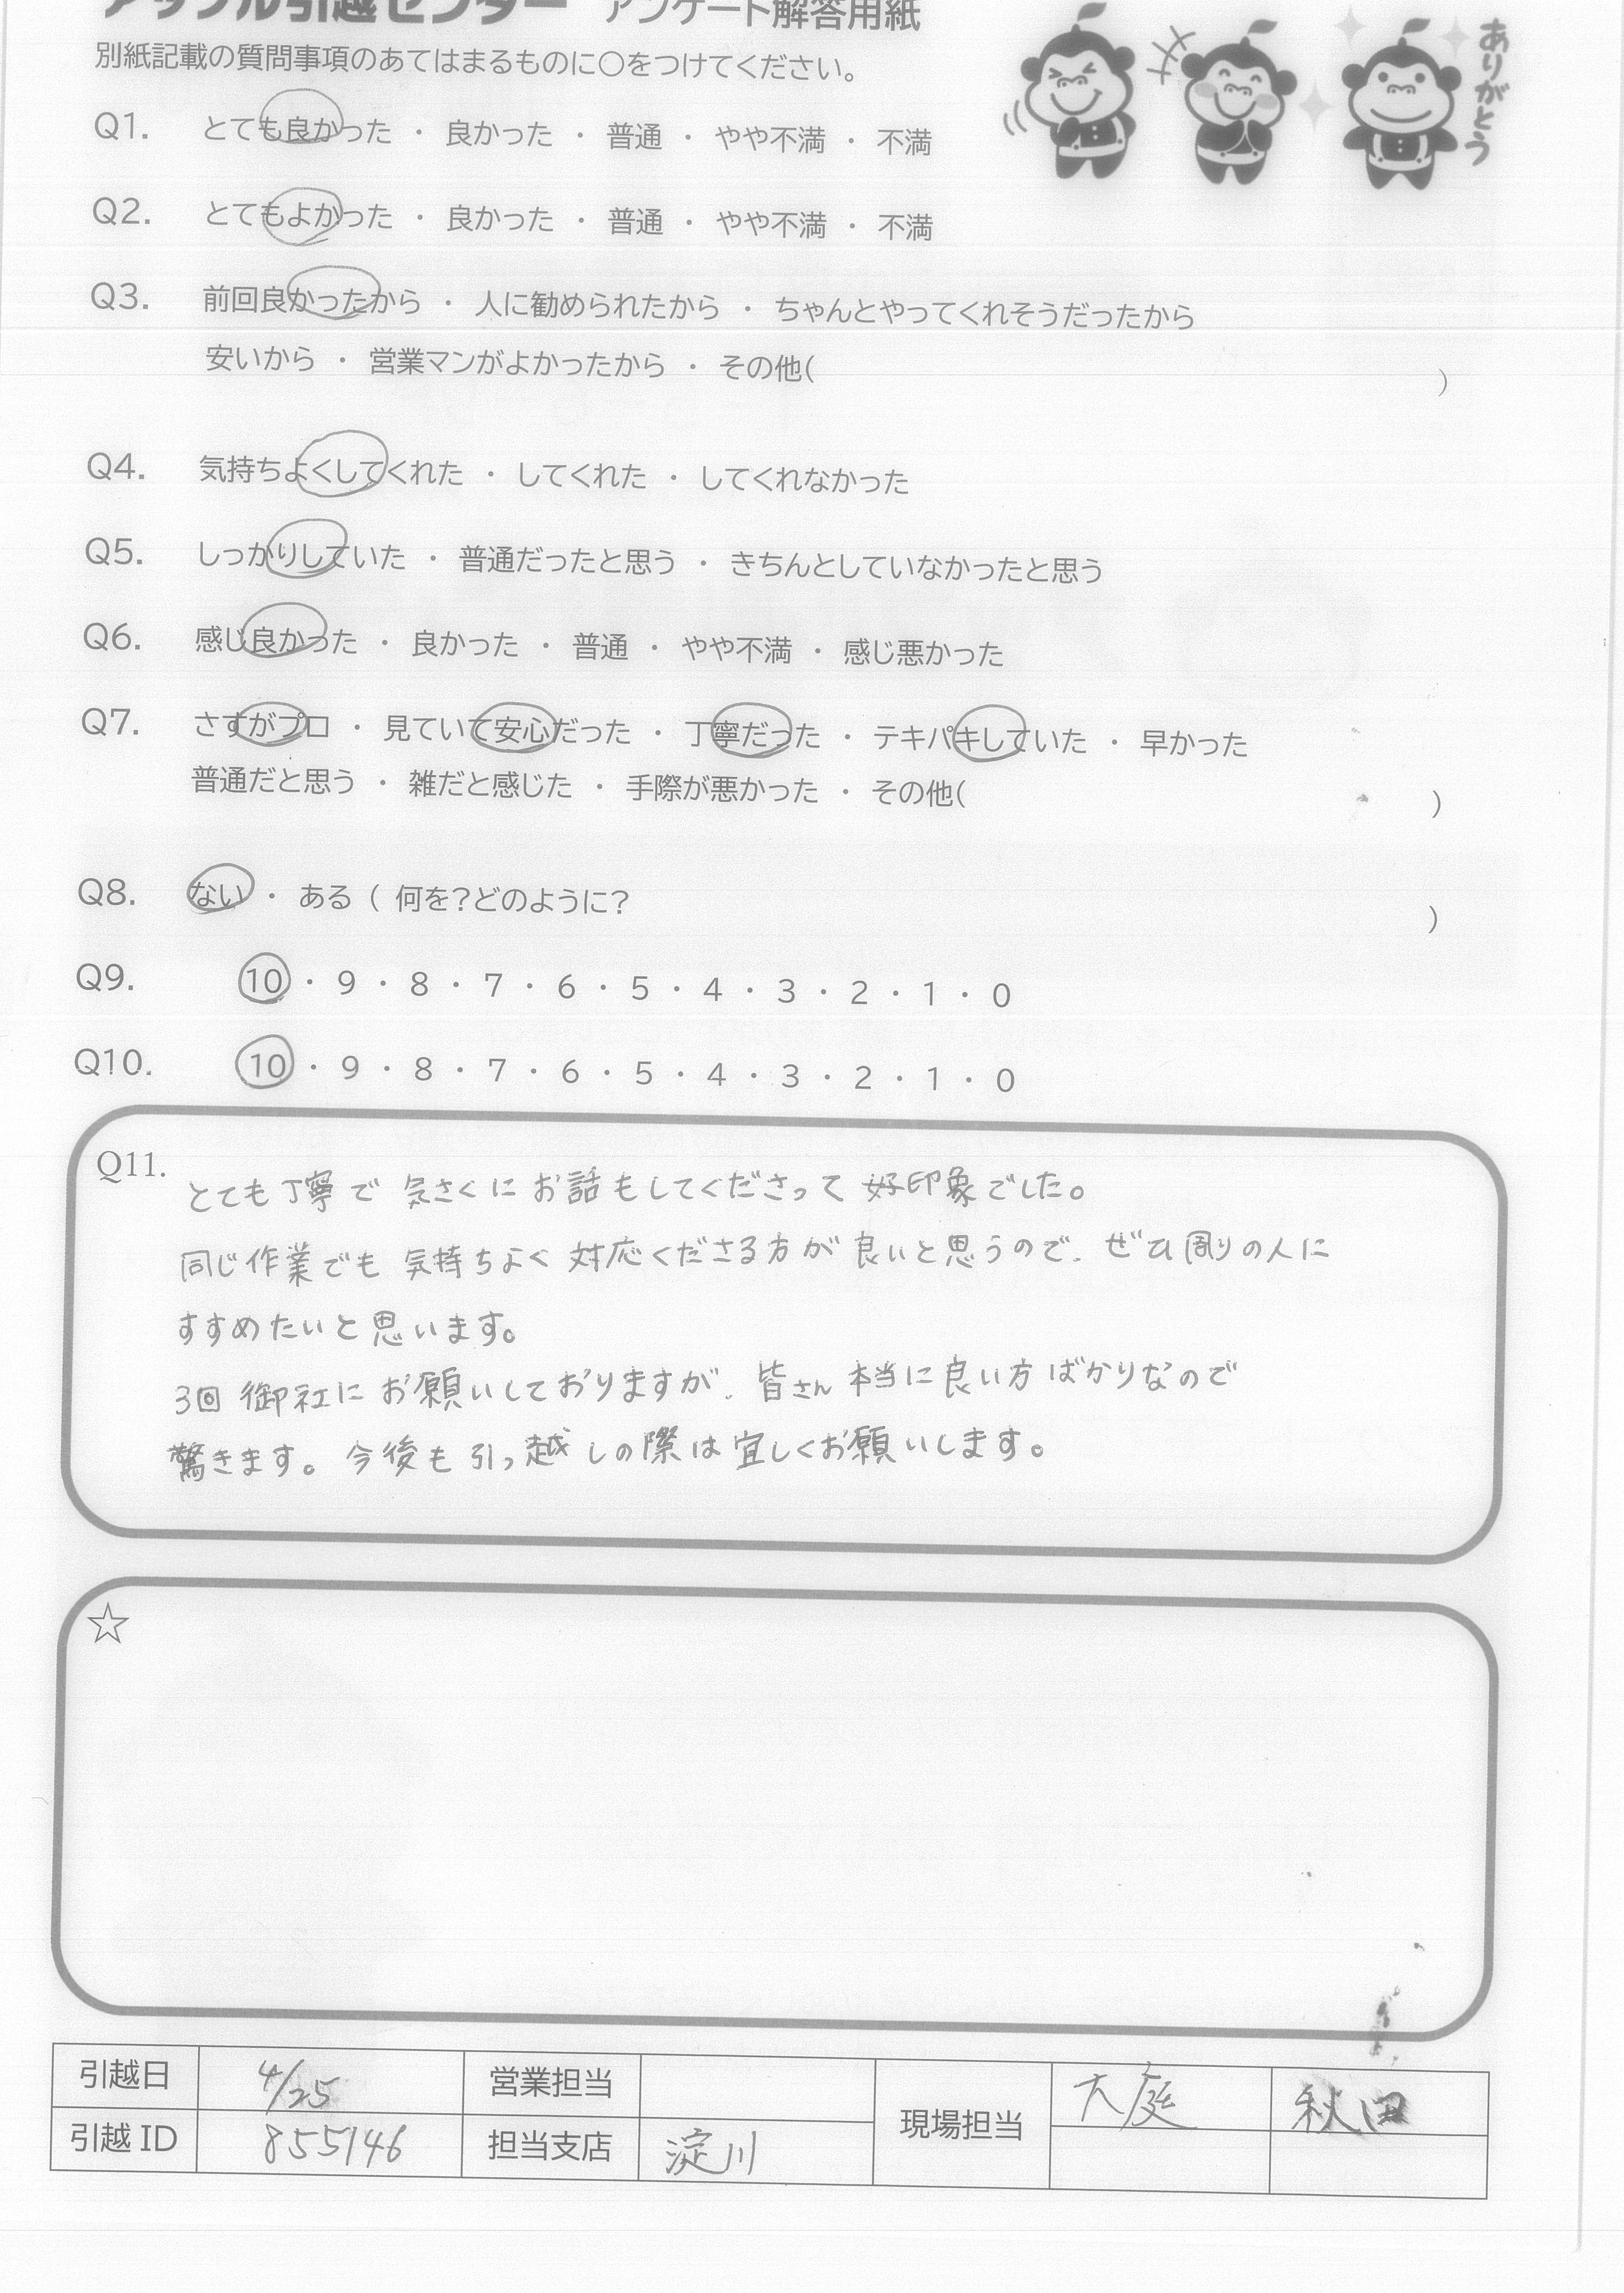 アップル引越センター アンケート解答用紙
別紙記載の質問事項のあてはまるものに○をつけてください。
ありがとう
Q1. とても良かった ・ 良かった ・ 普通 ・ やや不満 ・ 不満
Q2. とてもよかった ・ 良かった ・ 普通 ・ やや不満 ・ 不満
Q3. 前回良かったから ・ 人に勧められたから ・ ちゃんとやってくれそうだったから
安いから ・ 営業マンがよかったから ・ その他( )
Q4. 気持ちよくしてくれた ・ してくれた ・ してくれなかった
Q5. しっかりしていた ・ 普通だったと思う ・ きちんとしていなかったと思う
Q6. 感じ良かった ・ 良かった ・ 普通 ・ やや不満 ・ 感じ悪かった
Q7. さすがプロ ・ 見ていて安心だった ・ 丁寧だった ・ テキパキしていた ・ 早かった
普通だと思う ・ 雑だと感じた ・ 手際が悪かった ・ その他( )
Q8. ない ・ ある ( 何を?どのように? )
Q9. 10 ・ 9 ・ 8 ・ 7 ・ 6 ・ 5 ・ 4 ・ 3 ・ 2 ・ 1 ・ 0
Q10. 10 ・ 9 ・ 8 ・ 7 ・ 6 ・ 5 ・ 4 ・ 3 ・ 2 ・ 1 ・ 0
Q11. とても丁寧で 気さくに お話もしてくださって 好印象でした。
同じ作業でも 気持ちよく 対応くださる方が 良いと思うので、ぜひ周りの人に
すすめたいと思います。
3回 御社に お願いしておりますが、皆さん 本当に良い方ばかりなので
驚きます。今後も 引っ越しの際は 宜しくお願いします。
☆
引越日 4/25 営業担当 現場担当 大庭 秋田
引越ID 855146 担当支店 淀川